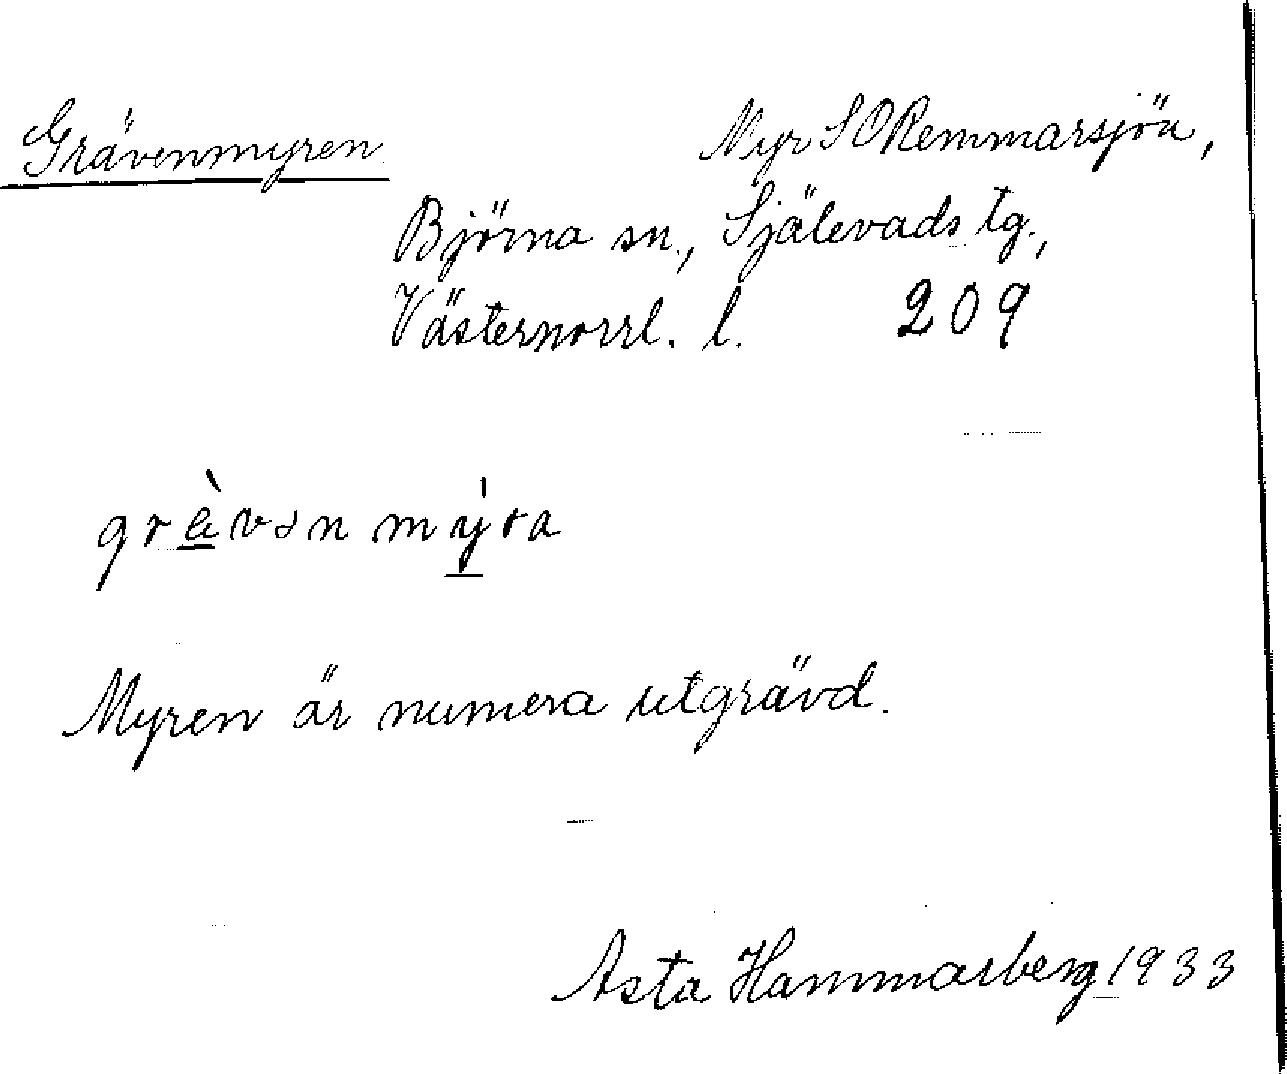 Grävenmyren
Myr SO Remmarsjön,
Björna sn., Själevads tg.,
Västernorrl. l. 209
grä̀vən mýra
Myren är numera utgrävd.
Asta Hammarberg 1933